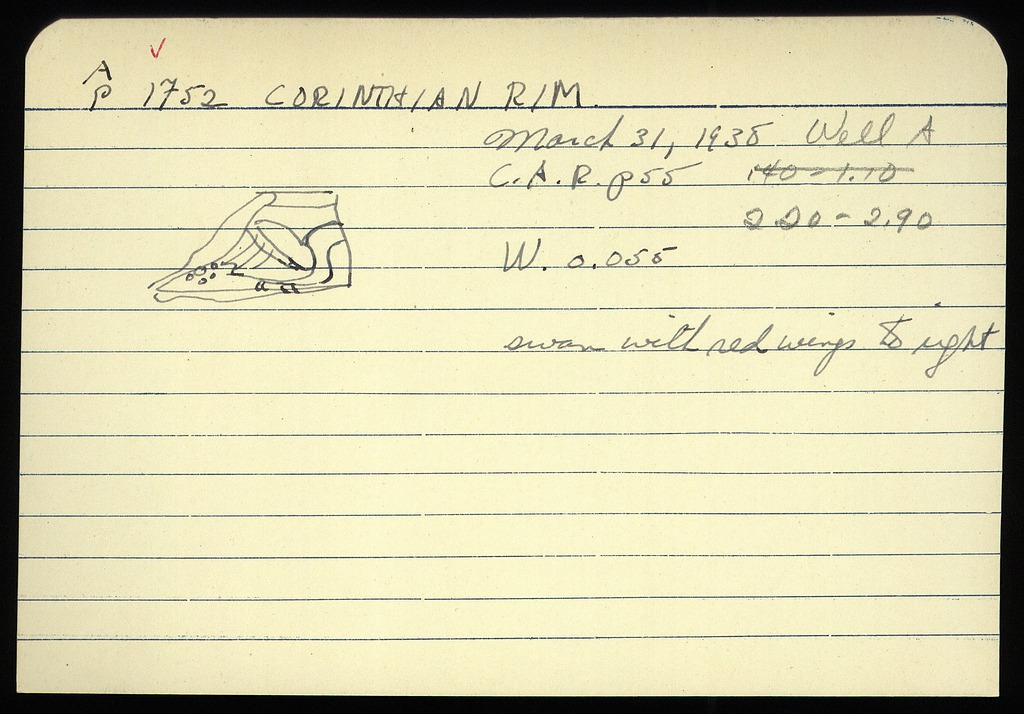 A
P 1752 CORINTHIAN RIM
March 31, 1938 Well A
C.A.R. p55 140-1.10
2 20-2.90
W. 0.055
swan with red wings to right